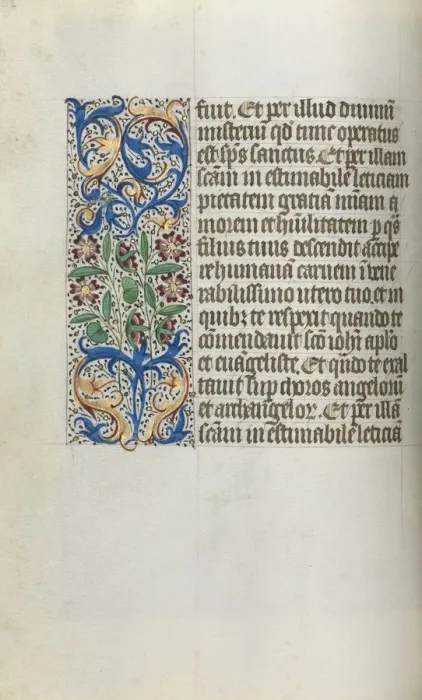 fuit. Et per illud diuinū
misteriū qd̄ tunc operatus
est sp̄s sanctus. Et per illam
scām in estimabilē leticiam
pietatem gratiā m̄iam a
morem et hūilitatem p q̄s
filius tuus descendit accipe
re humanā carnem ī vene
rabilissimo utero tuo, et in
quibꝫ te respexit quando te
cōmendauit sc̄o ioh̄i aplō
et euāgeliste, Et qn̄do te exal
tauit sup̄ choros angeloꝝ
et archāgeloꝝ. Et per illā
scām in estimabilē leticiā